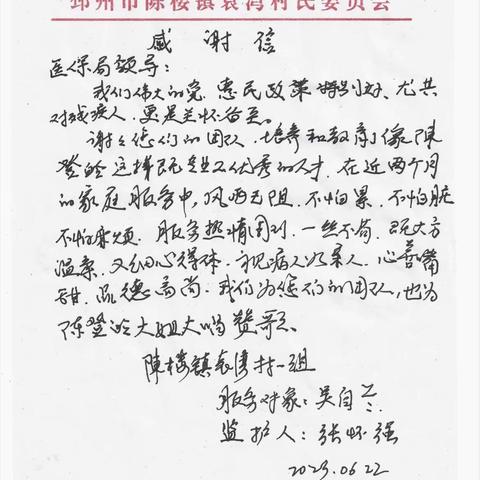 邳州市陈楼镇袁湾村民委员会
感谢信
医保局领导：
我们伟大的党，惠民政策特别好、尤其
对残疾人，更是关怀备至。
谢谢您们的团队，培养和教育像陈
登玲这样既专业又优秀的人才，在近两个月
的家庭服务中，风雨无阻，不怕累，不怕脏
不怕麻烦，服务热情周到，一丝不苟，既大方
温柔，又细心得体，视病人如亲人，心善嘴
甜，品德高尚，我们为您们的团队，也为
陈登玲大姐大唱赞歌。
陳楼镇袁湾村一组
服务对象：吴自兰
监护人：张怀强
2023.06.22